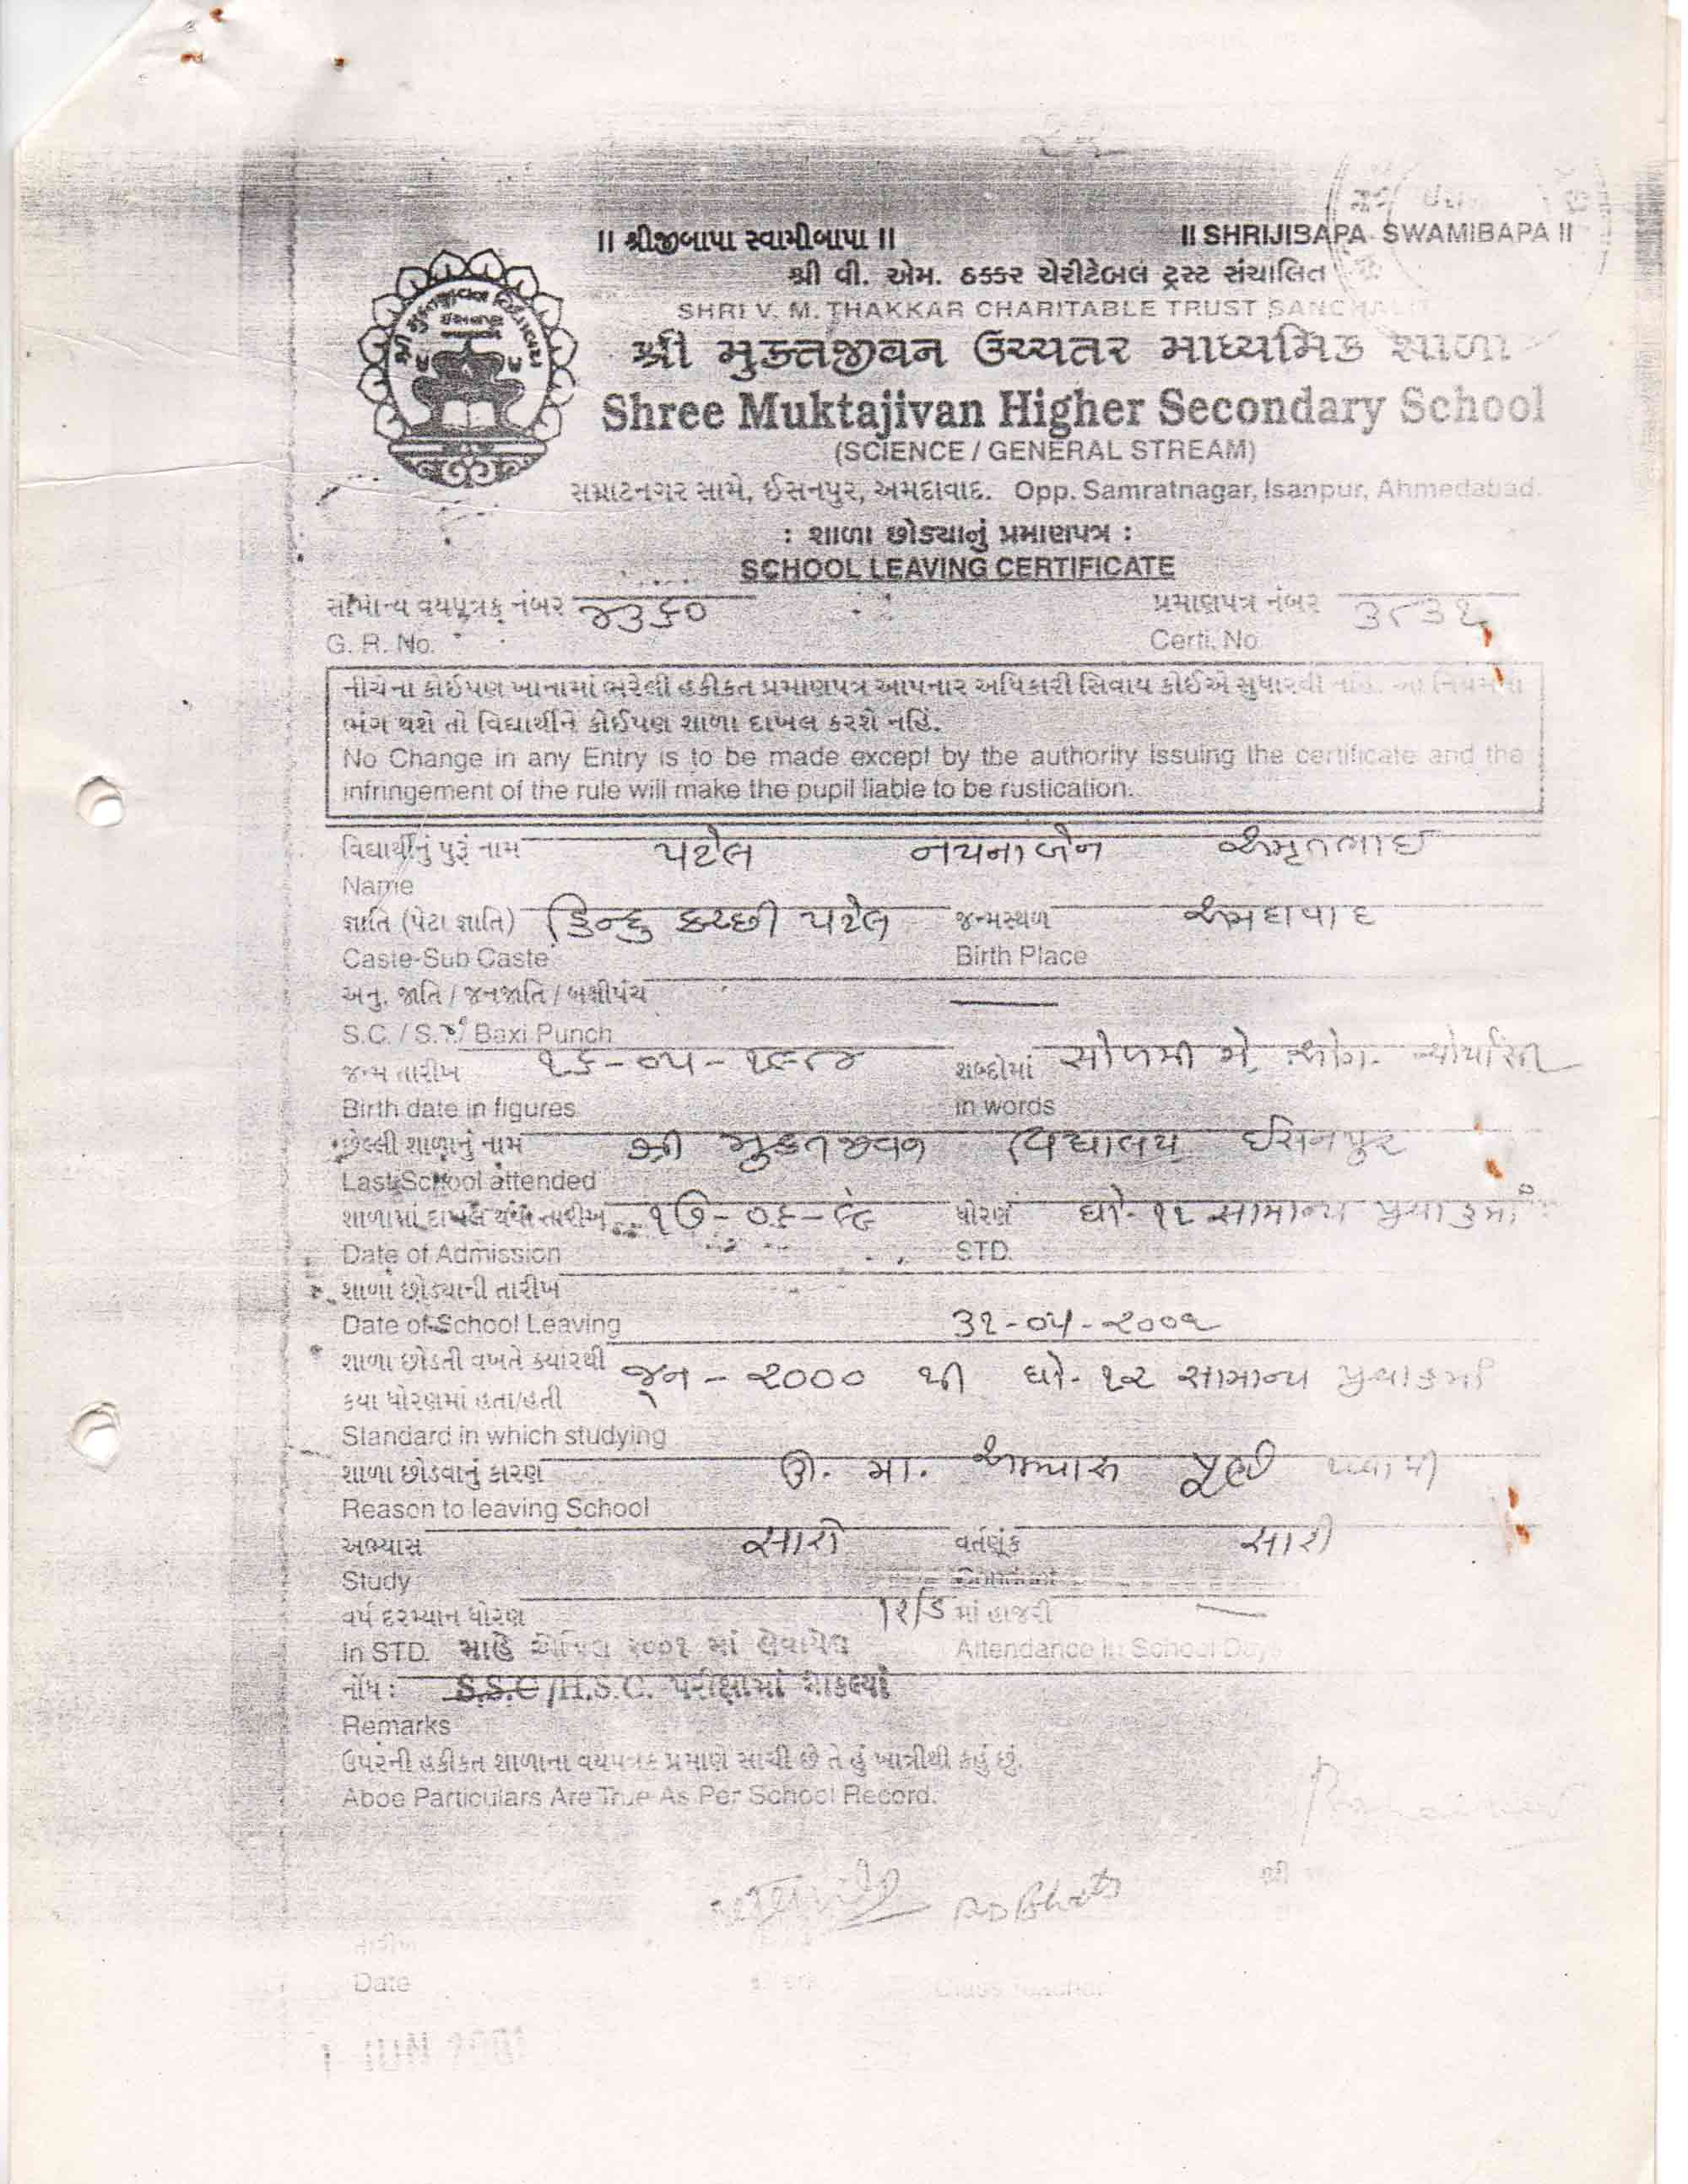 ॥ શ્રીજીબાપા સ્વામીબાપા ॥ ॥ SHRIJIBAPA SWAMIBAPA ॥
શ્રી વી. એમ. ઠક્કર ચેરીટેબલ ટ્રસ્ટ સંચાલિત
SHRI V. M. THAKKAR CHARITABLE TRUST
શ્રી મુક્તજીવન ઉચ્ચતર માધ્યમિક શાળા
Shree Muktajivan Higher Secondary School
(SCIENCE / GENERAL STREAM)
સમ્રાટનગર સામે, ઈસનપુર, અમદાવાદ. Opp. Samratnagar, Isanpur, Ahmedabad.
: શાળા છોડ્યાનું પ્રમાણપત્ર :
SCHOOL LEAVING CERTIFICATE
સામાન્ય વયપત્રક નંબર ૪૩૬૦ પ્રમાણપત્ર નંબર ૩૮૩૧
G. R. No. Certi. No.
નીચેના કોઈપણ ખાનામાં ભરેલી હકીકત પ્રમાણપત્ર આપનાર અધિકારી સિવાય કોઈએ સુધારવી નહિ. આ નિયમનો
ભંગ થશે તો વિદ્યાર્થીને કોઈપણ શાળા દાખલ કરશે નહિં.
No Change in any Entry is to be made except by the authority issuing the certificate and the
infringement of the rule will make the pupil liable to be rustication.
વિદ્યાર્થીનું પુરૂં નામ પટેલ નયનાબેન અમૃતભાઈ
Name
જ્ઞાતિ (પેટા જ્ઞાતિ) હિન્દુ કચ્છી પટેલ જન્મસ્થળ અમદાવાદ
Caste-Sub Caste Birth Place
અનુ. જાતિ / જનજાતિ / બક્ષીપંચ
S.C. / S.T./ Baxi Punch
જન્મ તારીખ ૧૬-૦૫-૧૯૮૪ શબ્દોમાં સોળમી મે
Birth date in figures in words
છેલ્લી શાળાનું નામ શ્રી મુક્તજીવન વિદ્યાલય ઈસનપુર
Last School attended
શાળામાં દાખલ થયા તારીખ ૧૭-૦૬-૯૯ ધોરણ ધો-૧૧ સામાન્ય પ્રવાહમાં
Date of Admission STD.
શાળા છોડ્યાની તારીખ
Date of School Leaving 31-૦૫-૨૦૦૧
શાળા છોડતી વખતે ક્યારથી જૂન - ૨૦૦૦ થી ધો-૧૨ સામાન્ય પ્રવાહમાં
કયા ધોરણમાં હતા/હતી
Standard in which studying
શાળા છોડવાનું કારણ ઉ. મા. અભ્યાસ પૂર્ણ થવાથી
Reason to leaving School
અભ્યાસ સારો વર્તણૂંક સારી
Study
વર્ષ દરમ્યાન ધોરણ ૧૨/ડ માં હાજરી
In STD. માહે એપ્રિલ ૨૦૦૧ માં લેવાયેલ Attendance in School Days
નોંધ : S.S.C/H.S.C. પરીક્ષામાં મોકલ્યાં
Remarks
ઉપરની હકીકત શાળાના વયપત્રક પ્રમાણે સાચી છે તે હું ખાત્રીથી કહું છું.
Aboe Particulars Are True As Per School Record.
શ્રી
તારીખ
Date Class Teacher